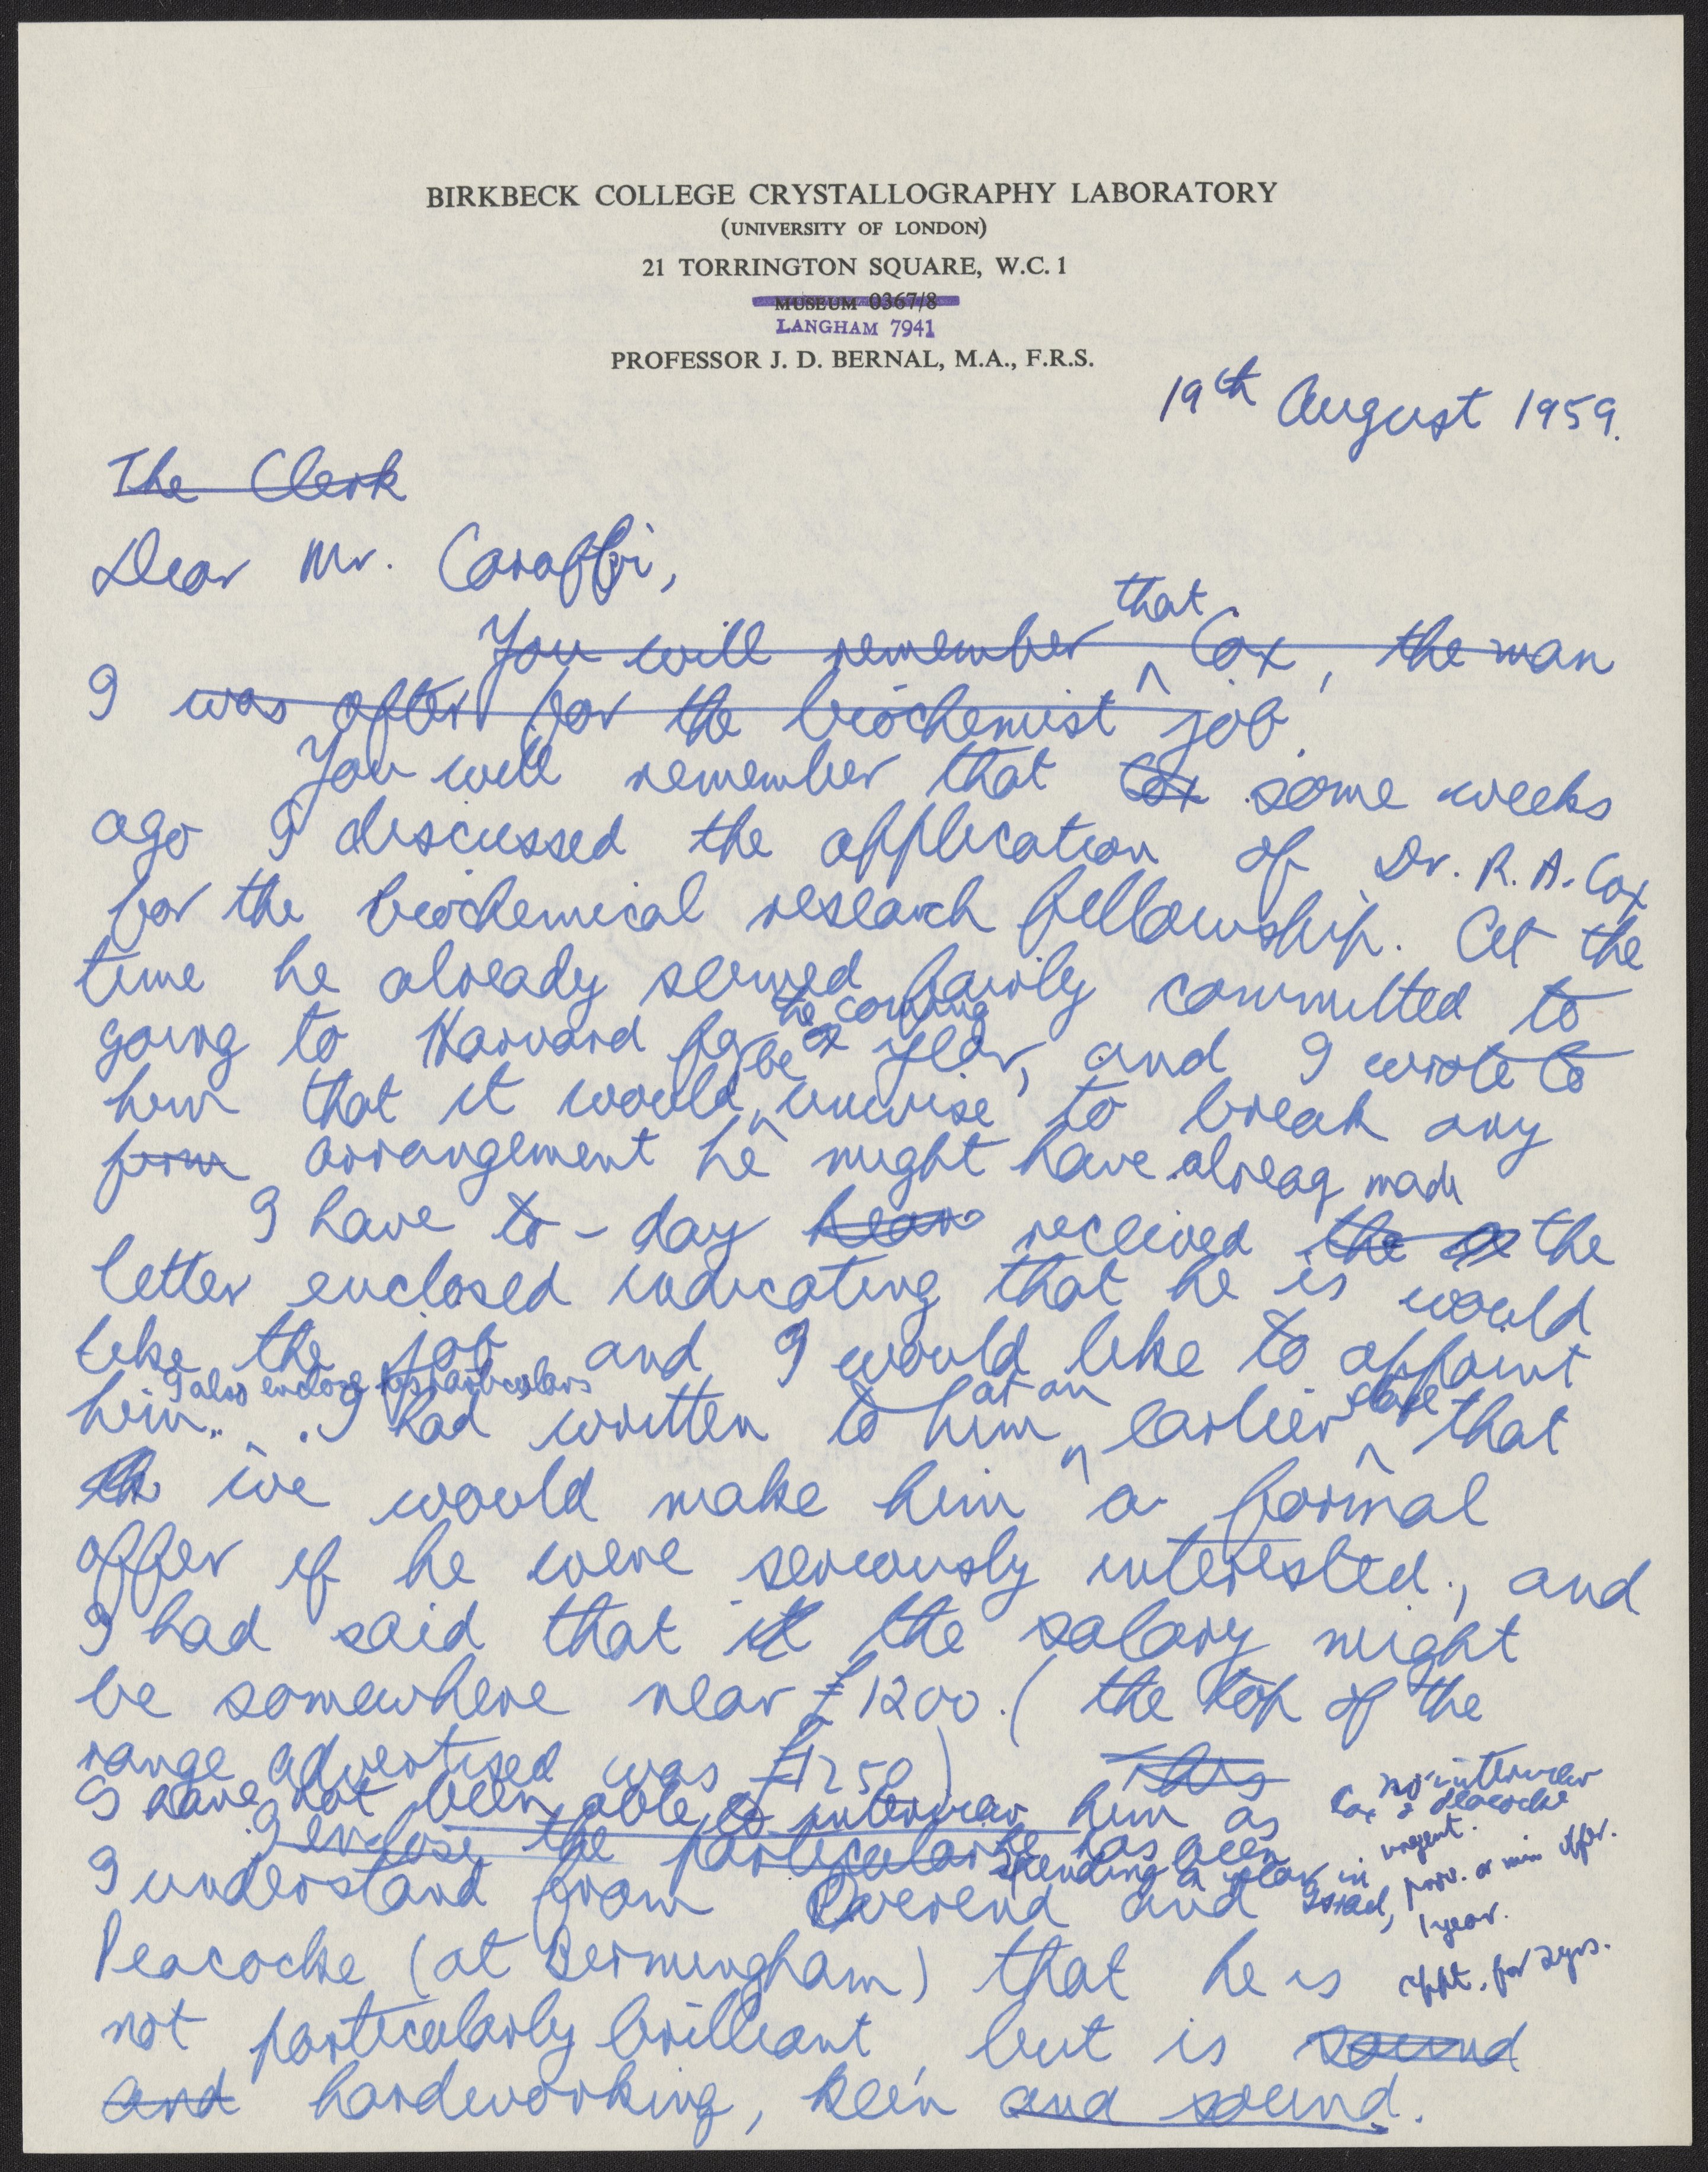 BIRKBECK COLLEGE CRYSTALLOGRAPHY LABORATORY
(UNIVERSITY OF LONDON)
21 TORRINGTON SQUARE, W.C. 1
MUSEUM 0367/8
LANGHAM 7941
PROFESSOR J. D. BERNAL, M.A., F.R.S.
19th August 1959.
The Clerk
Dear Mr. Caraffi,
that
You will remember ^ Cox, the man
I was after for the biochemist job.
You will remember that Cox some weeks
ago I discussed the application of Dr. R. A. Cox
for the biochemical research fellowship. At the
time he already seemed fairly committed to
the coming
going to Harvard for a year, and I wrote to
be
him that it would ^ unwise to break any
firm arrangement he might have alreay made
I have to-day hear received the the
letter enclosed indicating that he is would
like the job and I would like to appoint
I also enclose his particulars at an stage
him. ^ . I had written to him ^ earlier ^ that
th we would make him a formal
offer if he were seriously interested, and
I had said that it the salary might
be somewhere near £1200. (the top of the
range advertised was £1250) This
I have not been able to interview him as
I enclose the particulars he has been
spending a year in Israel,
I understand from Overend and
Peacocke (at Bermingham) that he is
not particularly brilliant, but is sound
and hardworking, keen and sound.
no interview
Cox & Peacocke
urgent.
prov. or min offer.
1 year.
appt. for 2 yrs.